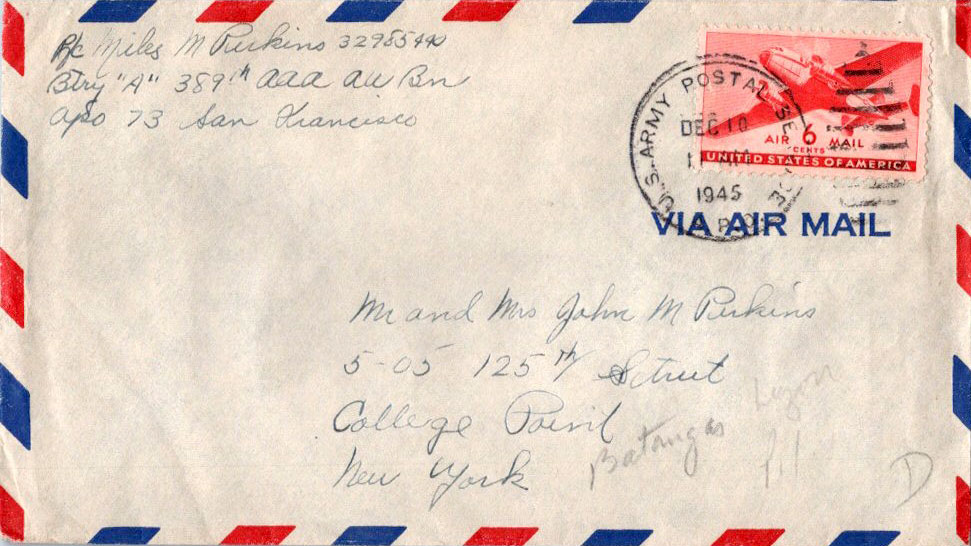 Pfc Miles M Perkins 32985440
Btry "A" 389th aaa aw Bn
apo 73 San Francisco
U.S. ARMY POSTAL SERVICE
DEC 10
1945
A.P.O.
AIR 6 MAIL
CENTS
UNITED STATES OF AMERICA
VIA AIR MAIL
Mr and Mrs John M Perkins
5-05 125th Street
College Point
New York
Batangas
Luzon
P.I.
D